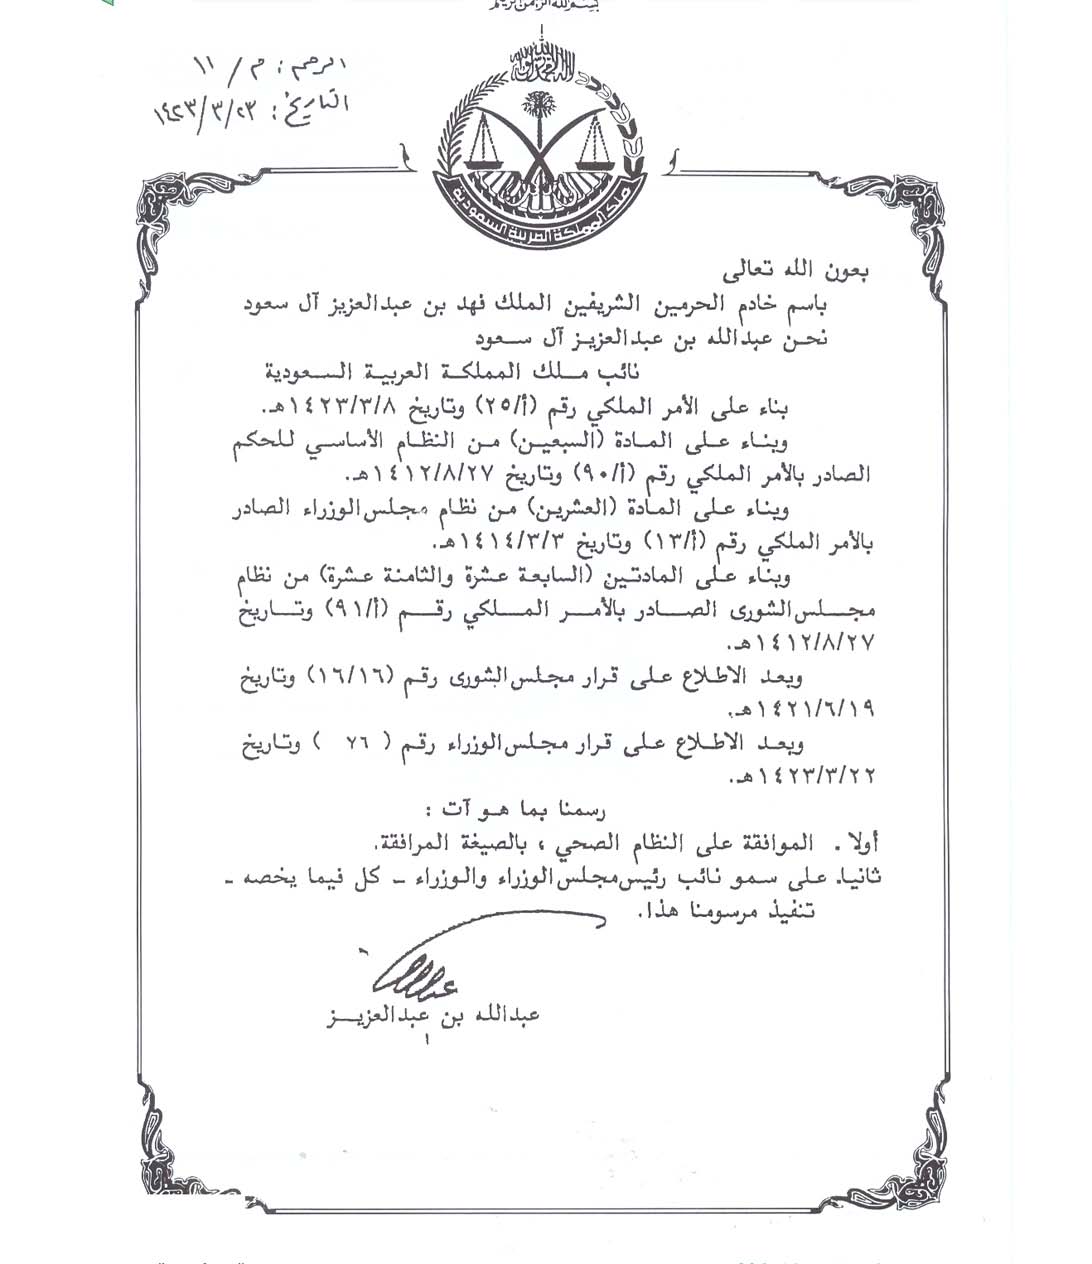 بسم الله الرحمن الرحيم
الرقم : م / ١١
التاريخ : ١٤٢٣/٣/٢٣
لا إله إلا الله محمد رسول الله
ملك المملكة العربية السعودية
بعون الله تعالى
باسم خادم الحرمين الشريفين الملك فهد بن عبدالعزيز آل سعود
نحن عبدالله بن عبدالعزيز آل سعود
نائب ملك المملكة العربية السعودية
بناء على الأمر الملكي رقم (أ/٢٥) وتاريخ ١٤٢٣/٣/٨هـ.
وبناء على المادة (السبعين) من النظام الأساسي للحكم
الصادر بالأمر الملكي رقم (أ/٩٠) وتاريخ ١٤١٢/٨/٢٧هـ.
وبناء على المادة (العشرين) من نظام مجلس الوزراء الصادر
بالأمر الملكي رقم (أ/١٣) وتاريخ ١٤١٤/٣/٣هـ.
وبناء على المادتين (السابعة عشرة والثامنة عشرة) من نظام
مجلس الشورى الصادر بالأمر الملكي رقم (أ/٩١) وتاريخ
١٤١٢/٨/٢٧هـ.
وبعد الاطلاع على قرار مجلس الشورى رقم (١٦/١٦) وتاريخ
١٤٢١/٦/١٩هـ.
وبعد الاطلاع على قرار مجلس الوزراء رقم ( ٧٦ ) وتاريخ
١٤٢٣/٣/٢٢هـ.
رسمنا بما هو آت :
أولا . الموافقة على النظام الصحي ، بالصيغة المرافقة.
ثانيا. على سمو نائب رئيس مجلس الوزراء والوزراء ـ كل فيما يخصه ـ
تنفيذ مرسومنا هذا.
عبدالله بن عبدالعزيز